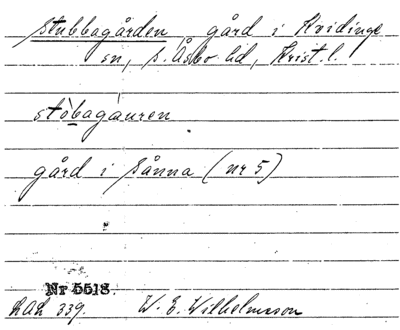 Stubbagården, gård i Kvidinge
sn, S. Åsbo hd, Krist. l.
stòbagáuren
gård i Sånna (nr 5)
Nr 5518.
LAL 339. W. E. Wilhelmsson